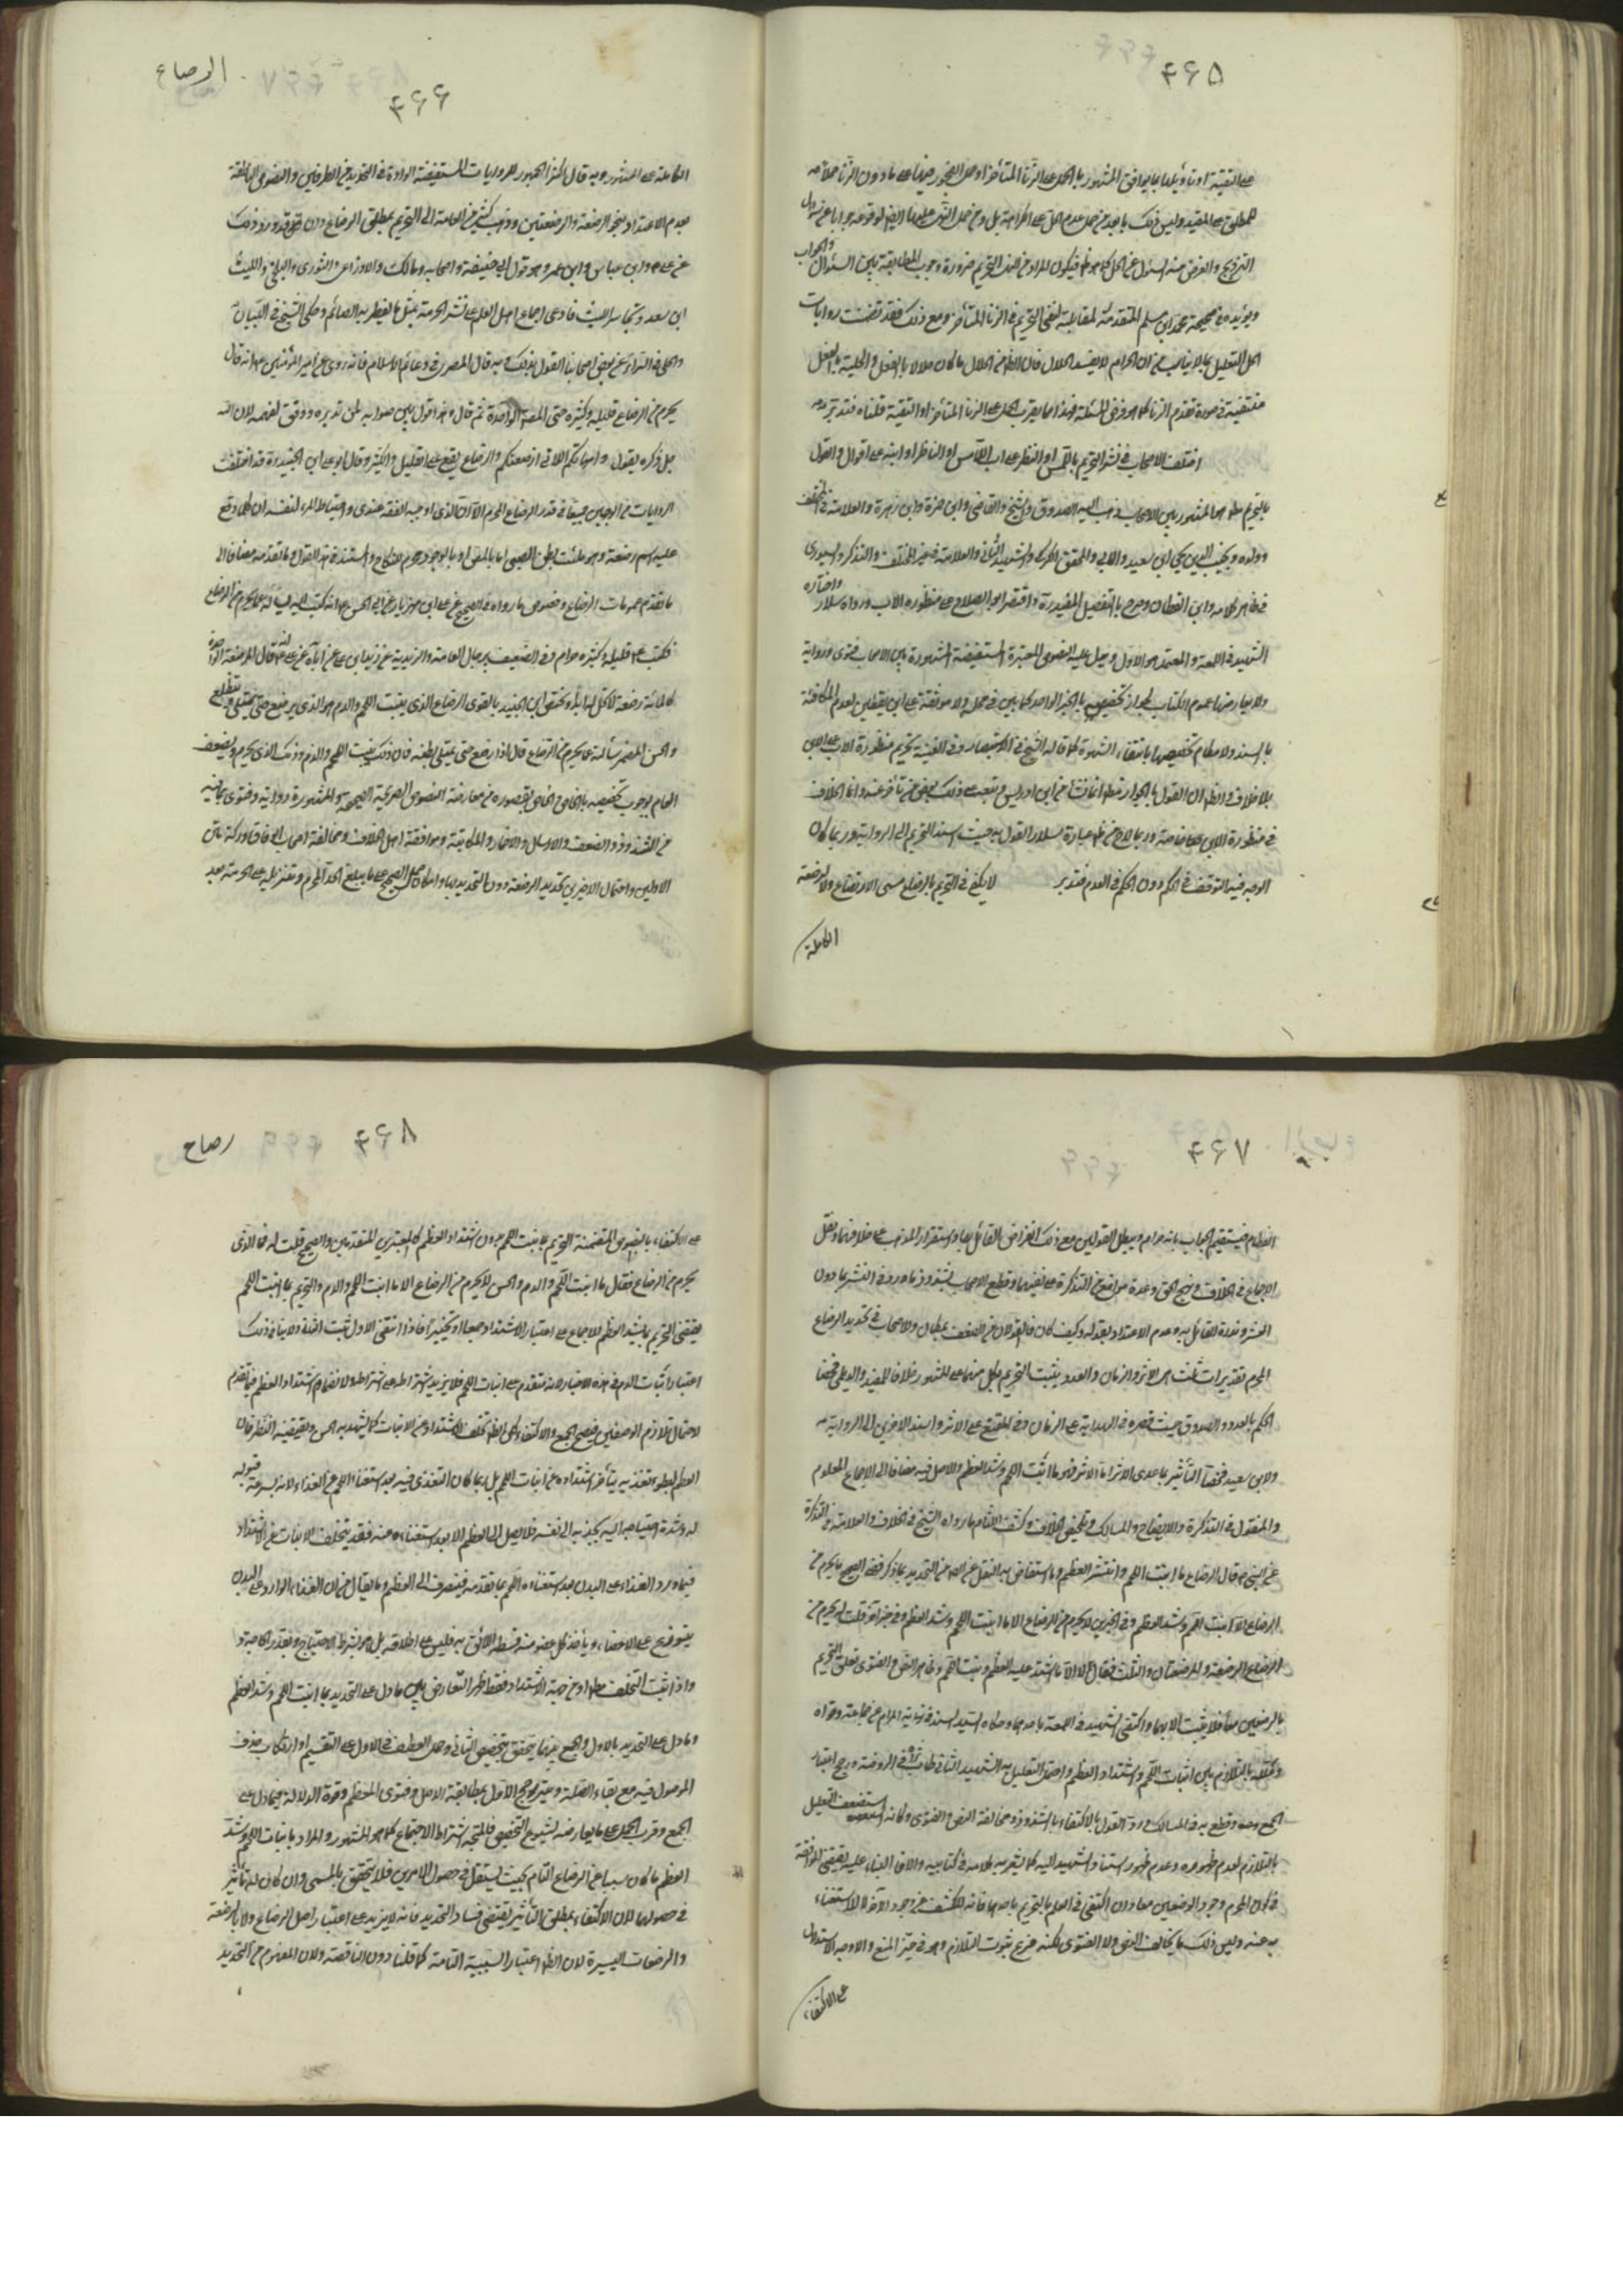 ۴۶۵
على التقية او تأويلها بما يوافق المشهور بالحمل على الزنا المتأخر او حمل الفجور فيها على ما دون الزنا حملا
للمطلق على المقيد وليس ذلك بابعد من حمل عدم الحل على الكراهة بل
التزويج والغرض منه السئول عن الحل كما هو ظ فيكون المراد من التحريم ضرورة وجوب المطابقة بين السئوال والجواب
ويؤيده صحيحة محمد بن مسلم المتقدمة لمقابلة لنفى التحريم في الزنا المتأخر ومع ذلك فقد تضمنت روايات
الحل التعليل بان الحرام لا يفسد الحلال فان الظ من الحلال ما كان حلالا بالفعل والحلية بالفعل
منتفية في صورة تقدم الزنا كما هو فرض المسئلة فهذا مما يقرب الحمل على الزنا المتأخر او التقية قلناه فتدبر
اختلف الاصحاب في نشر التحريم باللمس او النظر على اب اللامس او الناظر او ابنه على اقوال والقول
بالتحريم مط هو المشهور بين الاصحاب ذهب اليه الصدوق والشيخ والقاضى وابن حمزة وابن زهرة والعلامة في المختلف
وولده ونجيب الدين يحيى ابن سعيد والابى والمحقق الكركى والشهيد الثانى والعلامة في غير المختلف والتذكرة والسيورى
في ظاهر كلامه وابن القطان وصرح بالتفصيل المفيد واقتصر ابو الصلاح على منظورة الاب ورواه سلار واختاره
الشهيد في اللمعة والمعتمد هو الاول ويدل عليه النصوص المعتبرة المستفيضة المشهورة بين الاصحاب فتوى ورواية
ولا يعارضها عموم الكتاب لجواز تخصيصه بالخبر الواحد كما بين في محله ولا موثقة على ابن يقطين لعدم المكافئة
بالسند ولامكان تخصيصها بانتفاء الشهوة كما قاله الشيخ في الاستبصار وفي الغنية تحريم منظورة الاب على الابن
بلا خلاف
في منظورة الابن خاصة وربما لاح من ظ عبارة سلار القول به حيث اسند التحريم الى الرواية وربما كان
الوجه فيه التوقف في الحكم دون الحكم في العدم فتدبر لا يكفي في التحريم بالرضاع مسمى الارتضاع ولا الرضعة
الكاملة
الرضاع
۴۶۶
الكاملة على المشهور وبه قال اكثر الجمهور للروايات المستفيضة الواردة في التحديد من الطرفين والنصوص الناطقة
بعدم الاعتداد بنحو الرضعة والرضعتين وذهب كثير من العامة الى التحريم بمطلق الرضاع وان قل وقد ورد ذلك
عن على ع وابن عباس وابن عمر وهو قول ابى حنيفة واصحابه ومالك والاوزاعى والثورى والبلخى والليث
ابن سعد وتجاسر الليث فادعى اجماع اهل العلم على نشر الحرمة بمثل ما يفطر به الصائم وحكى الشيخ في التبيان
والحلى في السرائر عن بعض اصحابنا القول بذلك وبه قال المصرى في دعائم الاسلام فانه روى عن امير المؤمنين ع انه قال
يحرم من الرضاع قليله وكثيره حتى المصة الواحدة ثم قال وهذا قول بين صوابه لمن تدبره ووفق لفهمه لان الله
جل ذكره يقول وامهاتكم اللاتى ارضعنكم والرضاع يقع على القليل والكثير وقال ابو على ابن الجنيد وقد اختلفت
الروايات من الوجهين جميعا في قدر الرضاع المحرم الا ان الذى اوجبه الفقه عندى واحتياط المرء لنفسه ان كلما وقع
عليه اسم رضعة وهو ملئت بطن الصبى اما بالمص او بالوجور محرم للنكاح والمستند في هذا القول ما تقدمه مضافا الى
ما تقدم عمومات الرضاع وخصوص ما رواه في الصحيح عن على ابن مهزيار عن ابى الحسن ع انه كتب اليه يسأله عما يحرم من الرضاع
فكتب ع قليله وكثيره حرام وفي الضعيف برجال العامة والزيدية عن زيد ابن على عن ابآئه عن على ع انه قال الرضعة الواحدة
كالمائة رضعة لا تحل له ابدا
والحسن المضمر سئالته عما يحرم من الرضاع قال اذا رضع حتى يمتلى بطنه فان ذلك ينبت اللحم والدم وذلك الذى يحرم
العام بوجوب تخصيصه بالخاص والخاص بقصوره عن معارضة النصوص الصريحة الصحيحة المشهورة رواية وفتوى
من الشذوذ والضعف والارسال والاضمار والمكاتبة وموافقة اهل الخلاف ومخالفة اصحاب الوفاق
الاولين واحتمال الاخير تحديد الرضعة دون التحديد بها وامكان حمل الصحيح على ما يبلغ الحد المحرم وتنزيله على الحرمة بعد
۴۶۷
الفطام فيستقيم الجواب بانه حرام ويبطل القولين مع ذلك انقراض القائل بهما واستقرار المذهب على خلافهما ونقل
الاجماع في الخلاف ونهج الحق وعدة مواضع من التذكرة على نفيهما وقطع الاصحاب بشذوذ ما ورد في النشر بما دون
العشر وندرة القائل به وعدم الاعتداد بقوله وكيف كان فالقولان من الضعف بمكان وللاصحاب في تحديد الرضاع
المحرم تقديرات ثلث هى الاثر والزمان والعدد يثبت التحريم بكل منها على المشهور خلافا للمفيد والديلمى فخصا
الحكم بالعدد والصدوق حيث قصره في الهداية على الزمان وفي المقنع على الاثر واسند الاخرين الى الرواية
ولابن سعيد فخص التأثير بما عدى الاثر اما الاثر فهو ما انبت اللحم وشد العظم والاصل فيه مضافا الى الاجماع المعلوم
والمنقول في التذكرة والايضاح والمسالك وتلخيص الخلاف وكشف اللثام ما رواه الشيخ في الخلاف والعلامة في التذكرة
عن النبى ص قال الرضاع ما انبت اللحم وانشر العظم وما استفاض به النقل عن الص من التحديد بما ذكر ففى الصحيح ما يحرم من
الرضاع الا ما انبت اللحم وشد العظم وفي الخبرين لا يحرم من الرضاع الا ما انبت اللحم وشد العظم وفي خبر آخر قلت له يحرم من
الرضاع الرضعة والرضعتان والثلث فقال لا الا ما اشتد عليه العظم ونبت اللحم وظاهر النص والفتوى تعلق التحريم
بالوصفين معا فلا يثبت الا بهما واكتفى الشهيد في اللمعة باحدهما وحكاه السيد السند في نهاية المرام عن جماعة وقواه
وعلله بالتلازم بين انبات اللحم واشتداد العظم واحتمل التعليل به الشهيد الثانى طاب ثراه في الروضة ورجح اعتبار
الجمع وقطع به في المسالك ورد القول بالاكتفاء بالشذوذ ومخالفة النص والفتوى وكانه استضعف التعليل
بالتلازم لعدم ظهوره وعدم ظهور استناد الشهيد اليه كما يشعر به كلامه في كتابيه والا فالبناء عليه يقتضى الموافقة
في كون المحرم وجود الوصفين معا وان اكتفى في العلم بالتحريم باحدهما فانه للكشف عن وجود الآخر لا للاستغناء
به عنه وليس ذلك مما يخالف النص ولا الفتوى لكنه فرع ثبوت التلازم وهو في حيز المنع والاوجه الاستدلال
على الاكتفاء
۴۶۸
رضاع
على الاكتفاء بالنصوص المتضمنة التحريم بما ينبت اللحم بدون اشتداد العظم كالمعتبرين المتقدمين والصحيح قلت له فما الذى
يحرم من الرضاع فقال ما انبت اللحم والدم والحسن لا يحرم من الرضاع الا ما انبت اللحم والدم والتحريم بما انبت اللحم
يقتضى التحريم بما يشد العظم للاجماع على اعتبار الاشتداد جمعا او تخييرا فاذا انتفى الاول ثبت الثانى ولا ينافى ذلك
اعتبار انبات الدم في هذه الاخبار لانه متقدم على انبات اللحم فلا يزيد اشتراطه على اشتراطه ولا انضمام اشتداد العظم فيما تقدم
لاحتمال تلازم الوصفين فيصح الجمع والاكتفاء لكن الظ تخلف الاشتداد عن الانبات كما يشهد به الحس ويقتضيه النظر فان
العظم لبطوء تغذيه يتأخر اشتداده عن انبات اللحم بل ربما كان التغذى فيه بعد استغناء اللحم عن الغذاء لانه لسرعة قبوله
له وشدة احتياجه اليه يجذبه الى نفسه فلا يصل الى العظم الا بعد استغنائه عنه فقد يتخلف الانبات عن الاشتداد
فيما ورد الغذاء على البدن بعد استغناء اللحم بما تقدمه فينصرف الى العظم وما يقال من ان الغذاء الوارد على البدن
يتوزع على الاعضاء ويأخذ كل عضو منه قسطه اللائق به فليس على اطلاقه بل هو بشرط الاحتياج وبقدر الحاجة و
واذا ثبت التخلف مط او من جهة الاشتداد فقط ظهر التعارض بين ما دل على التحديد بما انبت اللحم وشد العظم
وما دل على التحديد بالاول والجمع بينهما يتحقق بتخصيص الثانى وحمل العطف في الاول على التقسيم او ارتكاب حذف
الموصول فيه مع بقاء الصلة ويترجح الاول بمطابقة الاصل وفتوى المعظم وقوة الدلالة فيما دل على
الجمع وقرب الحمل على ما يعارضه لشيوع التخصيص فالمتجه اشتراط الاجتماع كما هو المشهور والمراد بانبات اللحم وشد
العظم ما كان سببا عن الرضاع التام بحيث يستقل في حصول الامرين فلا يتحقق بالمسمى وان كان له تأثير
في حصولهما لان الاكتفاء بمطلق التأثير يقتضى فساد التحديد فانه لا يزيد على اعتبار اصل الرضاع ولا بالرضعة
والرضعات اليسيرة لان الظ اعتبار السببية التامة كما قلنا دون الناقصة ولان المفهوم من التحديد